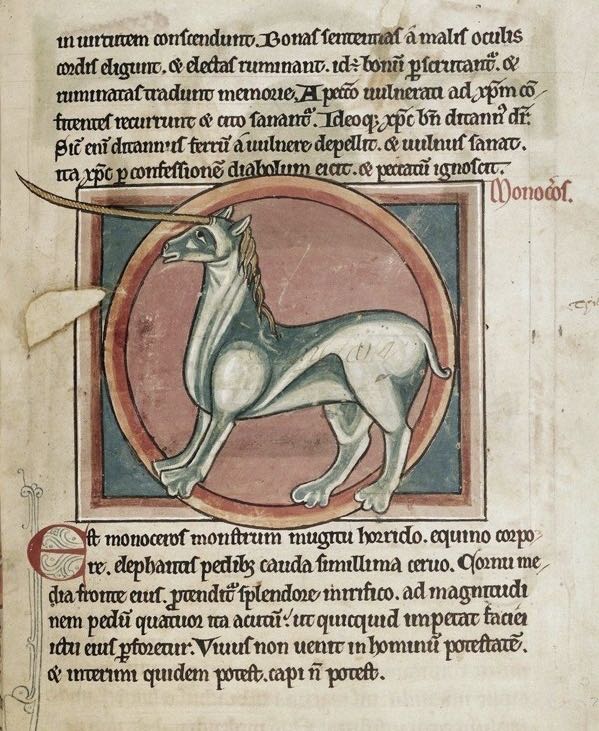 in uirtutem conscendunt. Bonas sententias a malis oculis
cordis eligunt. & electas ruminant. id÷ bonū ꝑscrutantᷣ. &
ruminatas tradunt memorie. A peccō uulnerati ad xp̄m cō
fitentes recurrunt & cito sanantᷣ. Ideoq; xp̄c bn̄ ditannū dr̄.
Sic̄ eni ditannus ferrū a uulnere depellit. & uulnus sanat.
ita xp̄c ꝑ confessionē diabolum eicit. & peccatū ignoscit.
Monoc̄os.
Est monoceros monstrum mugitu horrido. equino corpo
re. elephantis pedibꝫ cauda simillima ceruo. Cornu me
dia fronte eius ꝓtenditᷣ splendore mirifico. ad magnitudi
nem pedū quatuor ita acutū. ut quicquid impetat faciĺi
ictu eius ꝑforetur. Viuus non uenit in hominū potestatē.
& interimi quidem potest. capi n̄ potest.